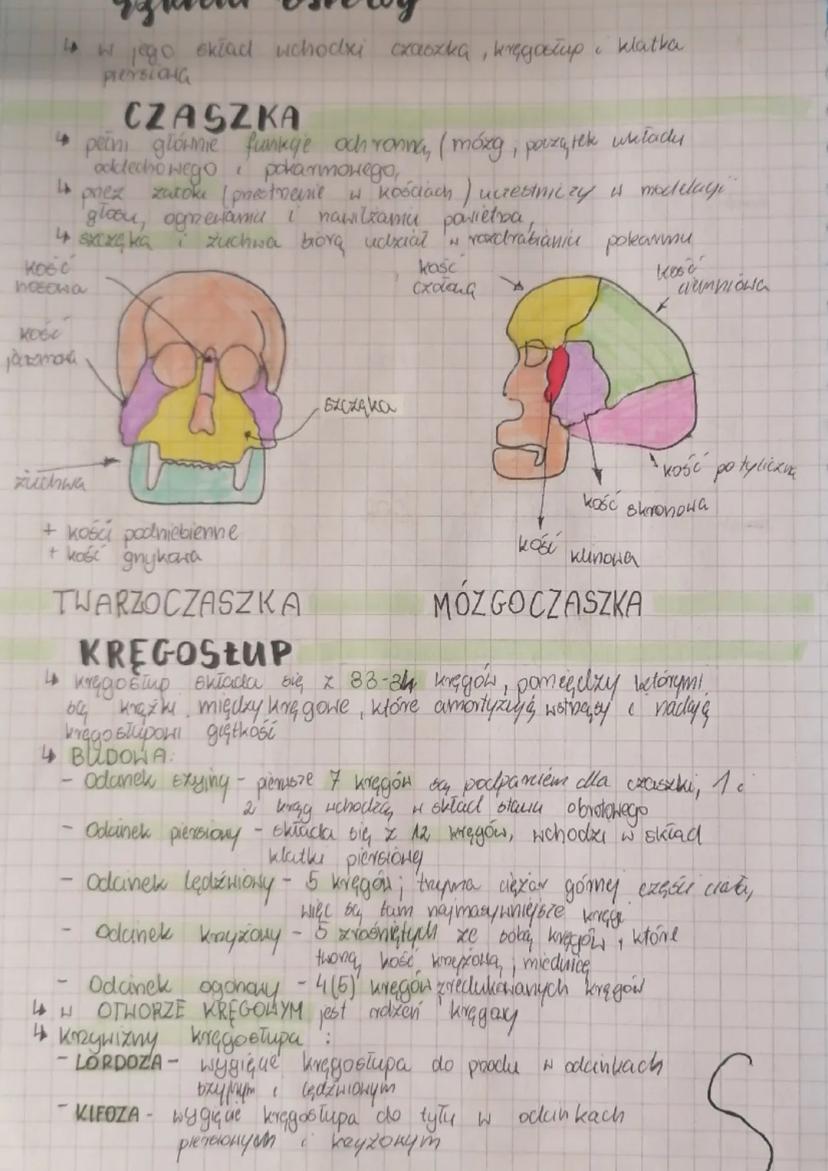 osiowy
↳ w jego skład wchodzi czaszka, kręgosłup i klatka
piersiowa
CZASZKA
↳ pełni głównie funkcje ochronną (mózg, początek układu
oddechowego i pokarmowego,
↳ przez zatoki (przestrzenie w kościach) uczestniczy w modelacji
głosu, ogrzewaniu i nawilżaniu powietrza,
↳ szczęka i żuchwa biorą udział w rozdrabianiu pokarmu
kość
nosowa
kość
czołowa
kość
ciemieniowa
kość
jarzmowa
szczęka
żuchwa
kość potyliczna
kość skroniowa
kość klinowa
+ kości podniebienne
+ kość gnykowa
TWARZOCZASZKA MÓZGOCZASZKA
KRĘGOSŁUP
↳ kręgosłup składa się z 33-34 kręgów, pomiędzy którymi
są krążki międzykręgowe, które amortyzują wstrząsy i nadają
kręgosłupowi giętkość
↳ BUDOWA:
- Odcinek szyjny - pierwsze 7 kręgów są podparciem dla czaszki, 1 i
2 kręg wchodzą w skład stawu obrotowego
- Odcinek piersiowy - składa się z 12 kręgów, wchodzi w skład
klatki piersiowej
- Odcinek lędźwiowy - 5 kręgów; trzyma ciężar górnej części ciała,
więc są tam najmasywniejsze kręgi
- Odcinek krzyżowy - 5 zrośniętych ze sobą kręgów, które
tworzą kość krzyżową i miednicę
- Odcinek ogonowy - 4(5) kręgów zredukowanych kręgów
↳ w OTWORZE KRĘGOWYM jest rdzeń kręgowy
↳ Krzywizny kręgosłupa :
- LORDOZA - wygięcie kręgosłupa do przodu w odcinkach
szyjnym i lędźwiowym
- KIFOZA - wygięcie kręgosłupa do tyłu w odcinkach
piersiowych i krzyżowym